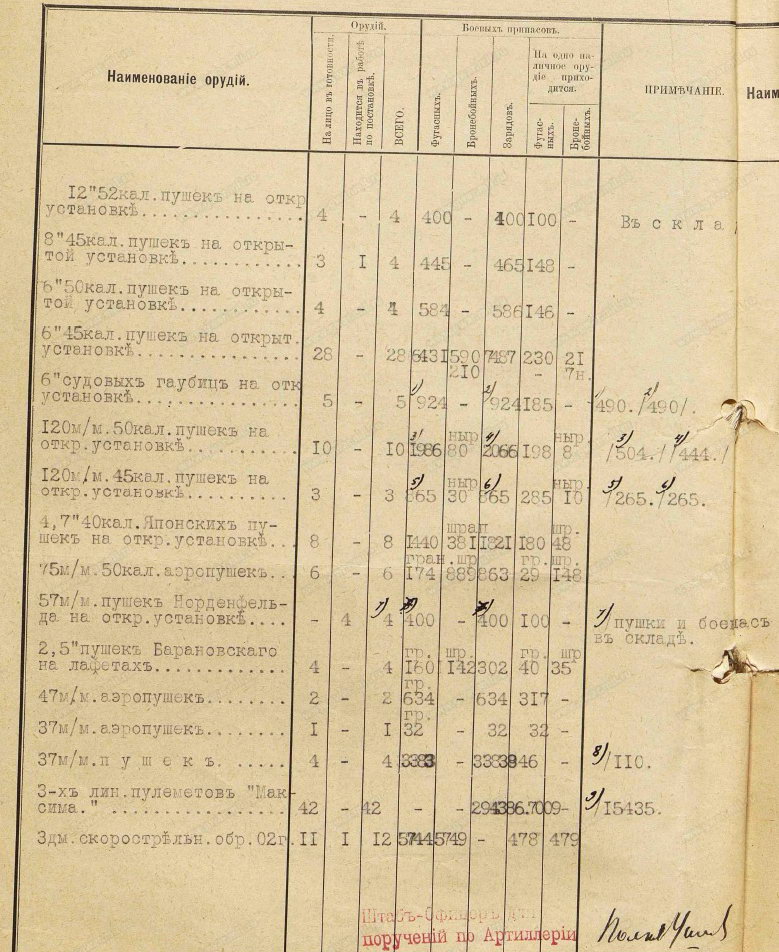 Орудій.
Боевыхъ припасовъ.
Наименованіе орудій.
На лицо въ готовности.
Находится въ работѣ по постановкѣ.
ВСЕГО.
Фугасныхъ.
Бронебойныхъ.
Зарядовъ.
На одно на-
личное ору-
діе прихо-
дится.
Фугас-
ныхъ.
Броне-
бойныхъ.
ПРИМѢЧАНІЕ.
Наим
12"52кал.пушекъ на откр
установкѣ................ 4 - 4 400 - 400 100 - Въ скла
8"45кал.пушекъ на откры-
той установкѣ............ 3 I 4 445 - 465 148 -
6"50кал.пушекъ на откры-
той установкѣ............ 4 - 4 584 - 586 146 -
6"45кал.пушекъ на открыт.
установкѣ................ 28 - 28 6431 590 7487 230 21
210 - 7н.
6"судовыхъ гаубицъ на отк 1) 2)
установкѣ................ 5 - 5 924 - 924 185 - 1) 490./ 2) 490/.
120м/м.50кал.пушекъ на 3) ныр 4) ныр.
откр.установкѣ........... 10 - 10 1986 80 2066 198 8 3) /504./ 4) /444./
120м/м.45кал.пушекъ на 5) ныр. 6) ныр.
откр.установкѣ........... 3 - 3 865 30 865 285 10 5) /265./ 6) /265.
4,7"40кал.Японскихъ пу- шрап шр.
шекъ на откр.установкѣ... 8 - 8 1440 381 1821 180 48
гран. шр. гр. шр.
75м/м.50кал.аэропушекъ... 6 - 6 174 889 863 29 148
57м/м.пушекъ Норденфель- 7) 7) 7)
да на откр.установкѣ..... - 4 4 400 - 400 100 - 7) /пушки и боезасъ
въ складѣ.
2,5"пушекъ Барановскаго гр. шр. гр. шр
на лафетахъ.............. 4 - 4 160 142 302 40 35
гр.
47м/м.аэропушекъ......... 2 - 2 634 - 634 317 -
гр.
37м/м.аэропушекъ......... I - I 32 32 32 -
37м/м.п у ш е к ъ. ...... 4 - 4 3383 - 3383 846 - 8) /110.
3-хъ лин.пулеметовъ "Мак-
сима." .................. 42 - 42 - - - 9) /15435.
3дм.скорострѣльн.обр.02г. II I 12 5749 - 478 479
Штабъ-Офицеръ для
порученій по Артиллеріи